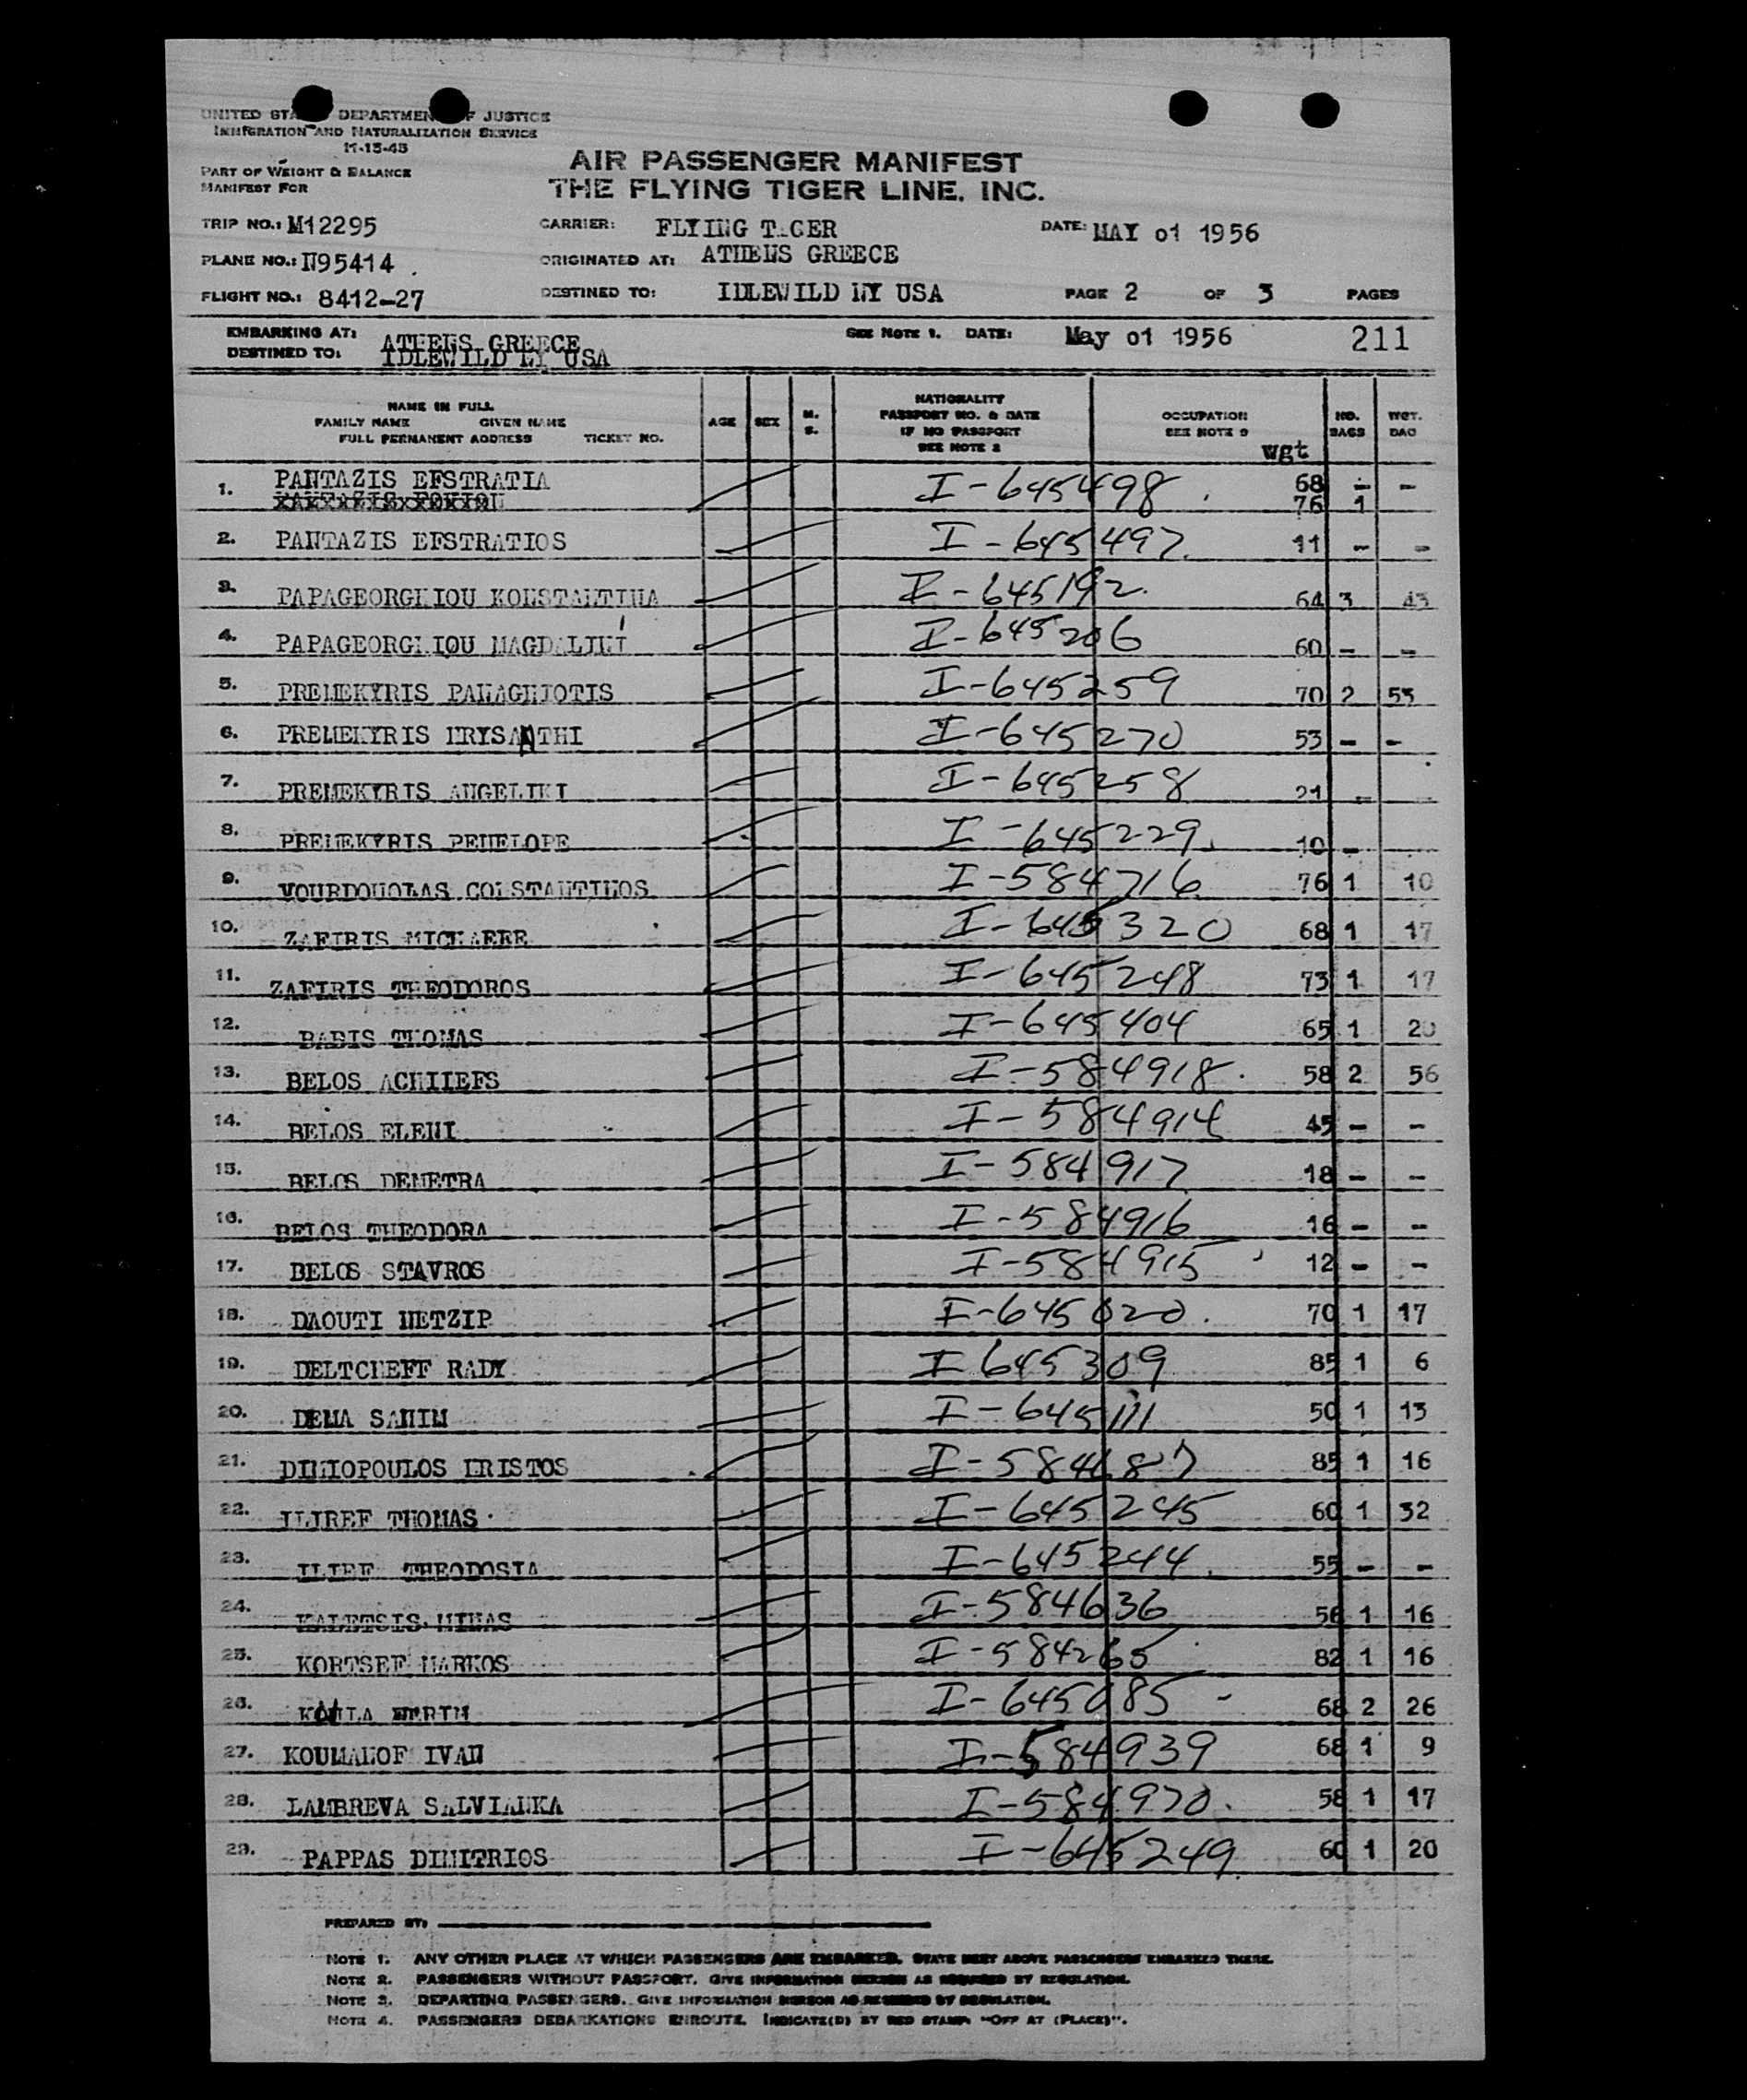 UNITED STA DEPARTMEN F JUSTICE
IMMIGRATION AND NATURALIZATION SERVICE
PART OF WEIGHT & BALANCE
MANIFEST FOR
AIR PASSENGER MANIFEST
THE FLYING TIGER LINE, INC.
TRIP NO.: M12295 CARRIER: FLYING T.GER DATE: MAY 01 1956
PLANE NO.: N95414 ORIGINATED AT: ATHENS GREECE
FLIGHT NO.: 8412-27 DESTINED TO: IDLEWILD NY USA PAGE 2 OF 3 PAGES
EMBARKING AT: ATHENS GREECE SEE NOTE 1. DATE: May 01 1956 211
DESTINED TO: IDLEWILD NY USA
NAME IN FULL
FAMILY NAME GIVEN NAME
FULL PERMANENT ADDRESS TICKET NO.
AGE SEX M. S.
NATIONALITY
PASSPORT NO. & DATE
IF NO PASSPORT
SEE NOTE 2
OCCUPATION
SEE NOTE 3
wgt
NO. BAGS
WGT. BAG
1. PANTAZIS EFSTRATIA I-645498 68 - -
76 1
2. PANTAZIS EFSTRATIOS I-645497 11 - -
3. PAPAGEORGHIOU KONSTANTINA I-645192 64 3 43
4. PAPAGEORGHIOU MAGDALINI I-645206 60 - -
5. PREMEKYRIS PANAGHIOTIS I-645259 70 2 53
6. PREMEKYRIS HRYSANTHI I-645270 53 - -
7. PREMEKYRIS ANGELIKI I-645258 21 -
8. PREMEKYRIS PENELOPE I-645229 10 -
9. VOURDOUOLAS CONSTANTINOS I-584716 76 1 10
10. ZAFIRIS I-645320 68 1 17
11. ZAFIRIS THEODOROS I-645248 73 1 17
12. BABIS THOMAS I-645404 65 1 20
13. BELOS ACHIIEFS I-584918 58 2 56
14. BELOS ELENI I-584914 45 - -
15. BELOS DEMETRA I-584917 18 - -
16. BELOS THEODORA I-584916 16 - -
17. BELOS STAVROS I-584915 12 - -
18. DAOUTI NETZIP I-645020 70 1 17
19. DELTCHEFF RADY I 645309 85 1 6
20. DEMA SANIM I-645111 50 1 13
21. DIMOPOULOS HRISTOS I-584687 85 1 16
22. ILIREF THOMAS I-645245 60 1 32
23. ILIEF THEODOSIA I-645244 55 - -
24. KALETSIS MINAS I-584636 56 1 16
25. KORTSEF MARKOS I-584265 82 1 16
26. I-645085 68 2 26
27. KOUMANOF IVAN I-584939 68 1 9
28. LAMBREVA SALVIANKA I-584970 58 1 17
29. PAPPAS DIMITRIOS I-645249 60 1 20
PREPARED BY:
NOTE 1. ANY OTHER PLACE AT WHICH PASSENGERS ARE EMBARKED, STATE NEXT ABOVE PASSENGERS EMBARKED THERE.
NOTE 2. PASSENGERS WITHOUT PASSPORT. GIVE INFORMATION HEREON AS REQUIRED BY REGULATION.
NOTE 3. DEPARTING PASSENGERS. GIVE INFORMATION HEREON AS REQUIRED BY REGULATION.
NOTE 4. PASSENGERS DEBARKATIONS ENROUTE. INDICATE(D) BY RED STAMP. "OFF AT (PLACE)".